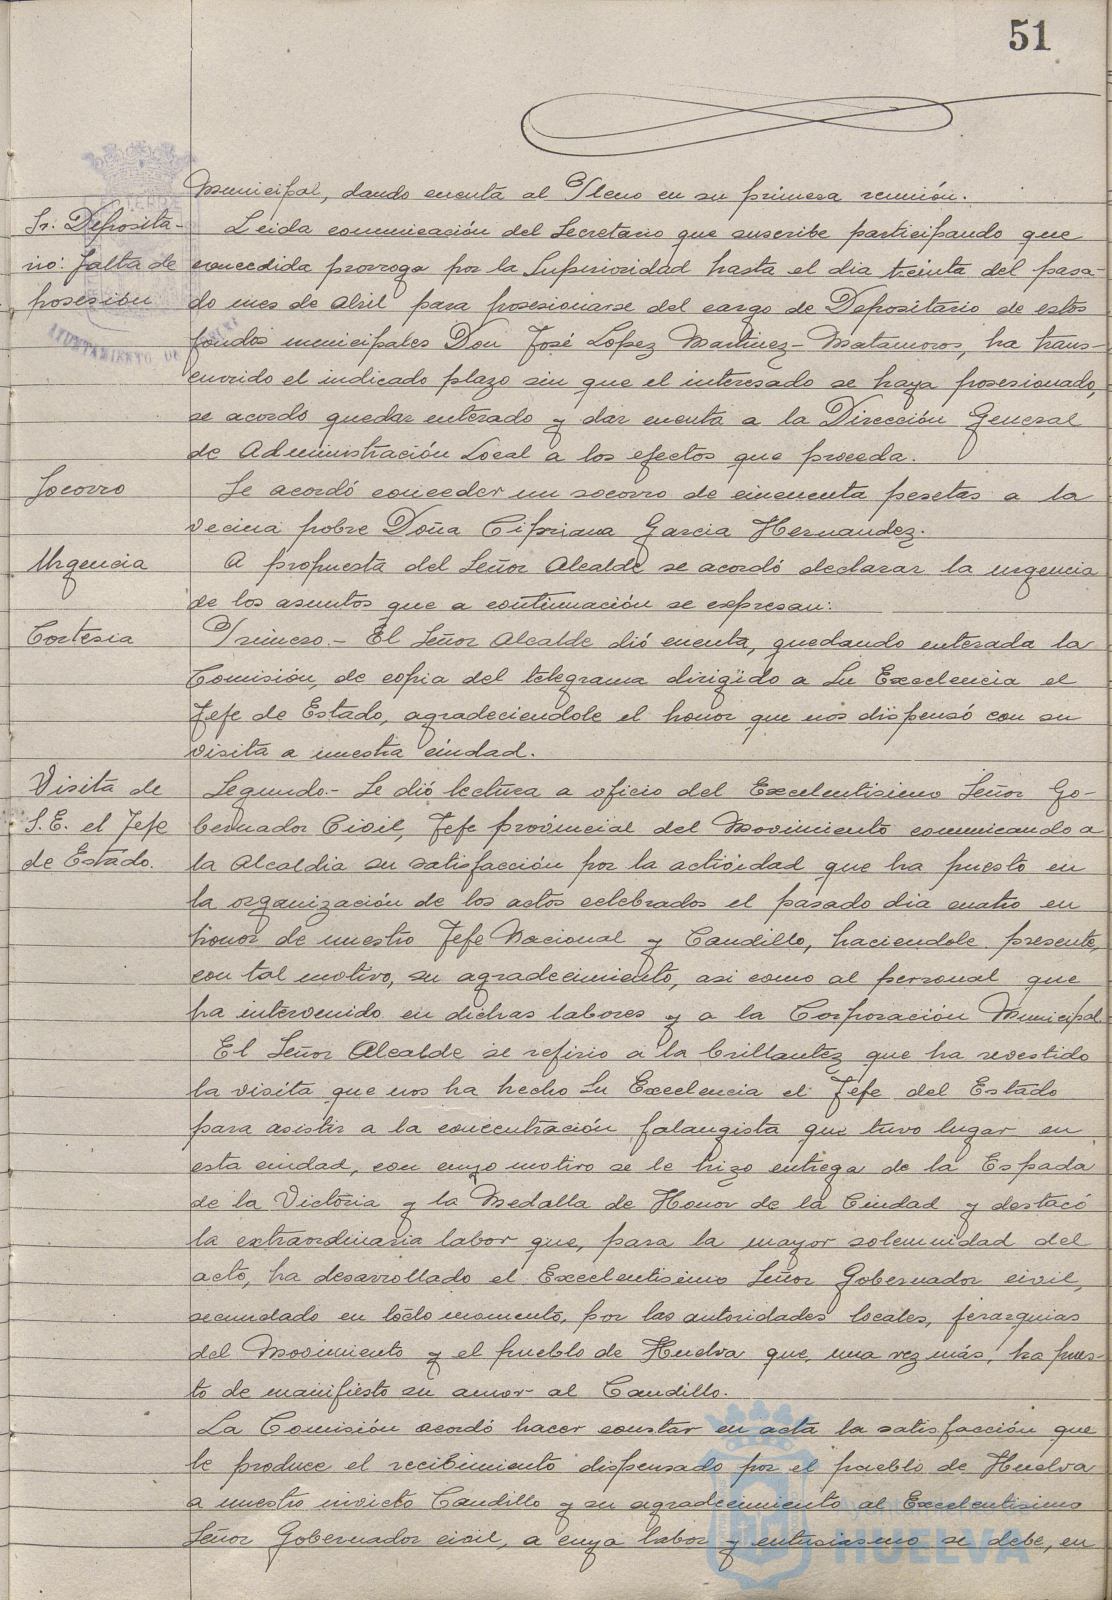 51
Municipal, dando cuenta al Pleno en su primera reunión.
Sr. Deposita- Leida comunicación del Secretario que suscribe participando que
rio: falta de concedida prorroga por la Superioridad hasta el dia treinta del pasa-
posesión do mes de Abril para posesionarse del cargo de Depositario de estos
fondos municipales Don José López Martinez-Matamoros, ha trans-
currido el indicado plazo sin que el interesado se haya posesionado,
se acordo quedar enterado y dar cuenta a la Dirección General
de Administración Local a los efectos que proceda.
Socorro Se acordó conceder un socorro de cincuenta pesetas a la
vecina pobre Doña Cipriana Garcia Hernandez.
Urgencia A propuesta del Señor Alcalde se acordó declarar la urgencia
de los asuntos que a continuación se expresan:
Cortesia Primero.- El Señor Alcalde dió cuenta, quedando enterada la
Comisión, de copia del telegrama dirigido a Su Excelencia el
Jefe de Estado, agradeciendole el honor que nos dispensó con su
visita a nuestra ciudad.
Visita de Segundo.- Se dió lectura a oficio del Excelentisimo Señor Go-
S.E. el Jefe bernador Civil, Jefe provincial del Movimiento comunicando a
de Estado. la Alcaldia su satisfacción por la actividad que ha puesto en
la organización de los actos celebrados el pasado dia cuatro en
honor de nuestro Jefe Nacional y Caudillo, haciendole presente,
con tal motivo, su agradecimiento, asi como al personal que
ha intervenido en dichas labores y a la Corporación Municipal.
El Señor Alcalde se refirio a la brillantez que ha revestido
la visita que nos ha hecho Su Excelencia el Jefe del Estado
para asistir a la concentración falangista que tuvo lugar en
esta ciudad, con cuyo motivo se le hizo entrega de la Espada
de la Victoria y la Medalla de Honor de la Ciudad y destacó
la extraordinaria labor que, para la mayor solemnidad del
acto, ha desarrollado el Excelentisimo Señor Gobernador civil,
secundado en todo momento, por las autoridades locales, jerarquias
del Movimiento y el pueblo de Huelva que, una vez más, ha pues-
to de manifiesto su amor al Caudillo.
La Comisión acordó hacer constar en acta la satisfacción que
le produce el recibimiento dispensado por el pueblo de Huelva
a nuestro invicto Caudillo y su agradecimiento al Excelentisimo
Señor Gobernador civil, a cuya labor y entusiasmo se debe, en
Ayuntamiento de
HUELVA